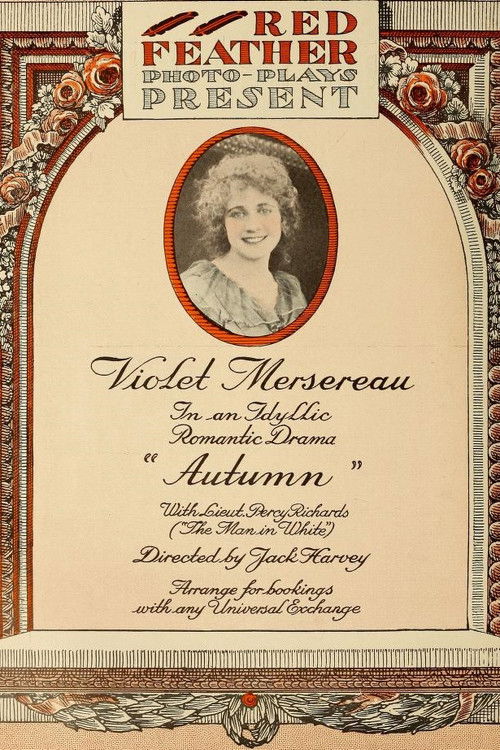 RED
FEATHER
PHOTO-PLAYS
PRESENT
Violet Mersereau
In an Idyllic
Romantic Drama
"Autumn"
With Lieut. Percy Richards
("The Man in White")
Directed by Jack Harvey
Arrange for bookings
with any Universal Exchange